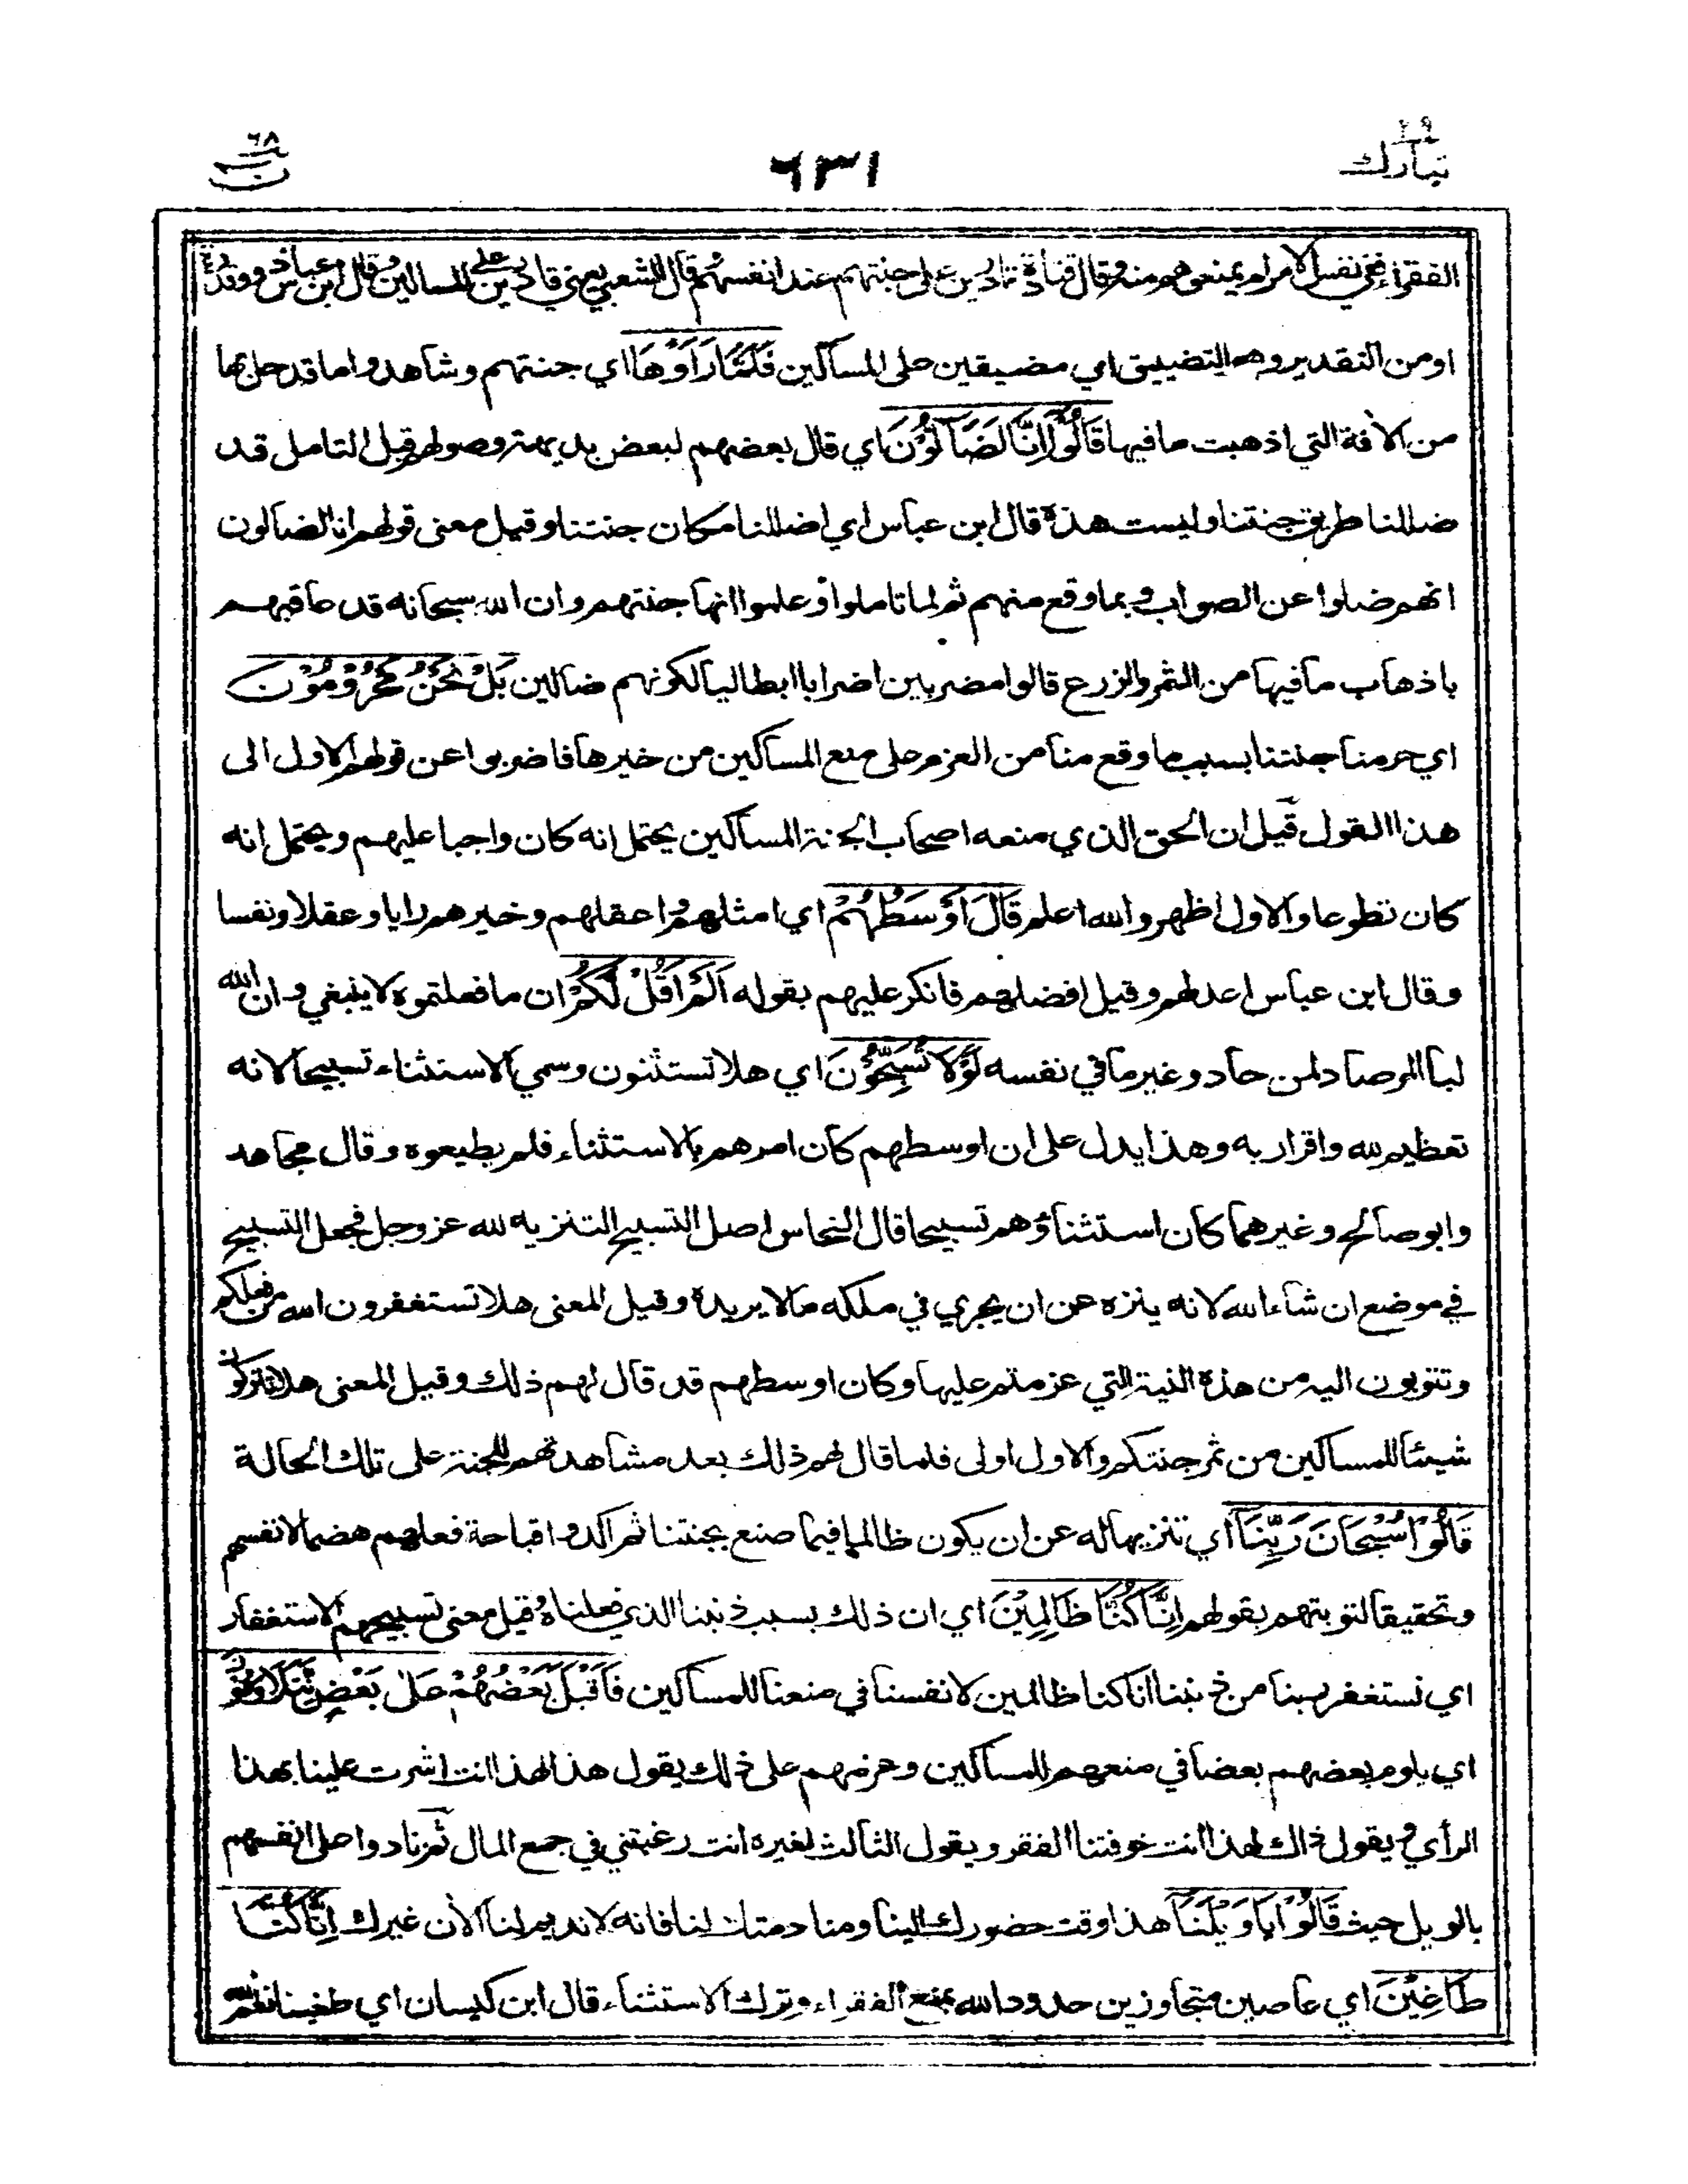 تبارك ٢٩
٦٣١
ن ٦٨
الفقراء ففي نفس الامر لم يمنعوهم منه وقال قتادة قادرين على جنتهم عند انفسهم وقال الشعبي يعني قادرين على المساكين وقال ابن عباس ذو وقدرة
او من التقدير وهو التضييق اي مضيقين على المساكين فَلَمَّا رَأَوْهَا اي جنتهم وشاهدوا ما قد حل بها
من الآفة التي اذهبت ما فيها قَالُوْا اِنَّا لَضَآلُّوْنَ اي قال بعضهم لبعض بديهة وصولهم قبل التامل قد
ضللنا طريق جنتنا وليست هذه قال ابن عباس اي اضللنا مكان جنتنا وقيل معنى قولهم انا لضالون
انهم ضلوا عن الصواب بما وقع منهم ثم لما تاملوا وعلموا انها جنتهم وان الله سبحانه قد عاقبهم
باذهاب ما فيها من الثمر والزرع قالوا مضربين اضرابا ابطاليا لكونهم ضالين بَلْ نَحْنُ مَحْرُوْمُوْنَ
اي حرمنا جنتنا بسبب ما وقع منا من العزم على منع المساكين من خيرها فاضربوا عن قولهم الاول الى
هذا القول قيل ان الحق الذي منعه اصحاب الجنة المساكين يحتمل انه كان واجبا عليهم ويحتمل انه
كان تطوعا والاول اظهر والله اعلم قَالَ اَوْسَطُهُمْ اي امثلهم واعقلهم وخيرهم رايا وعقلا ونفسا
وقال ابن عباس اعدلهم وقيل افضلهم فانكر عليهم بقوله اَلَمْ اَقُلْ لَّكُمْ ان ما فعلتموه لا ينبغي وان الله
لبالمرصاد لمن حاد وغير ما في نفسه لَوْلَا تُسَبِّحُوْنَ اي هلا تستثنون وسمي الاستثناء تسبيحا لانه
تعظيم لله واقرار به وهذا يدل على ان اوسطهم كان امرهم بالاستثناء فلم يطيعوه وقال مجاهد
وابو صالح وغيرهما كان استثناؤهم تسبيحا قال النحاس اصل التسبيح التنزيه لله عز وجل فجعل التسبيح
في موضع ان شاء الله لانه ينزه عن ان يجري في ملكه ما لا يريده وقيل المعنى هلا تستغفرون الله من فعلكم
وتتوبون اليه من هذه النية التي عزمتم عليها وكان اوسطهم قد قال لهم ذلك وقيل المعنى هلا تتركون
شيئا للمساكين من ثمر جنتكم والاول اولى فلما قال لهم ذلك بعد مشاهدتهم للجنة على تلك الحالة
قَالُوْا سُبْحَانَ رَبِّنَآ اي تنزيها له عن ان يكون ظالما فيما صنع بجنتنا ثم اكدوا قباحة فعلهم هضما لانفسهم
وتحقيقا لتوبتهم بقولهم اِنَّا كُنَّا ظَالِمِيْنَ اي ان ذلك بسبب ذنبنا الذي فعلناه وقيل معنى تسبيحهم الاستغفار
اي نستغفر ربنا من ذنبنا انا كنا ظالمين لانفسنا في منعنا للمساكين فَاَقْبَلَ بَعْضُهُمْ عَلٰى بَعْضٍ يَّتَلَاوَمُوْنَ
اي يلوم بعضهم بعضا في منعهم للمساكين وعزمهم على ذلك يقول هذا لهذا انت اشرت علينا بهذا
الرأي ويقول ذاك لهذا انت خوفتنا الفقر ويقول الثالث لغيره انت رغبتني في جمع المال ثم نادوا على انفسهم
بالويل حيث قَالُوْا يَا وَيْلَنَآ هذا وقت حضورك الينا ومنادمتك لنا فانه لا نديم لنا الآن غيرك اِنَّا كُنَّا
طَاغِيْنَ اي عاصين متجاوزين حدود الله بمنع الفقراء وترك الاستثناء قال ابن كيسان اي طغينا نعم الله